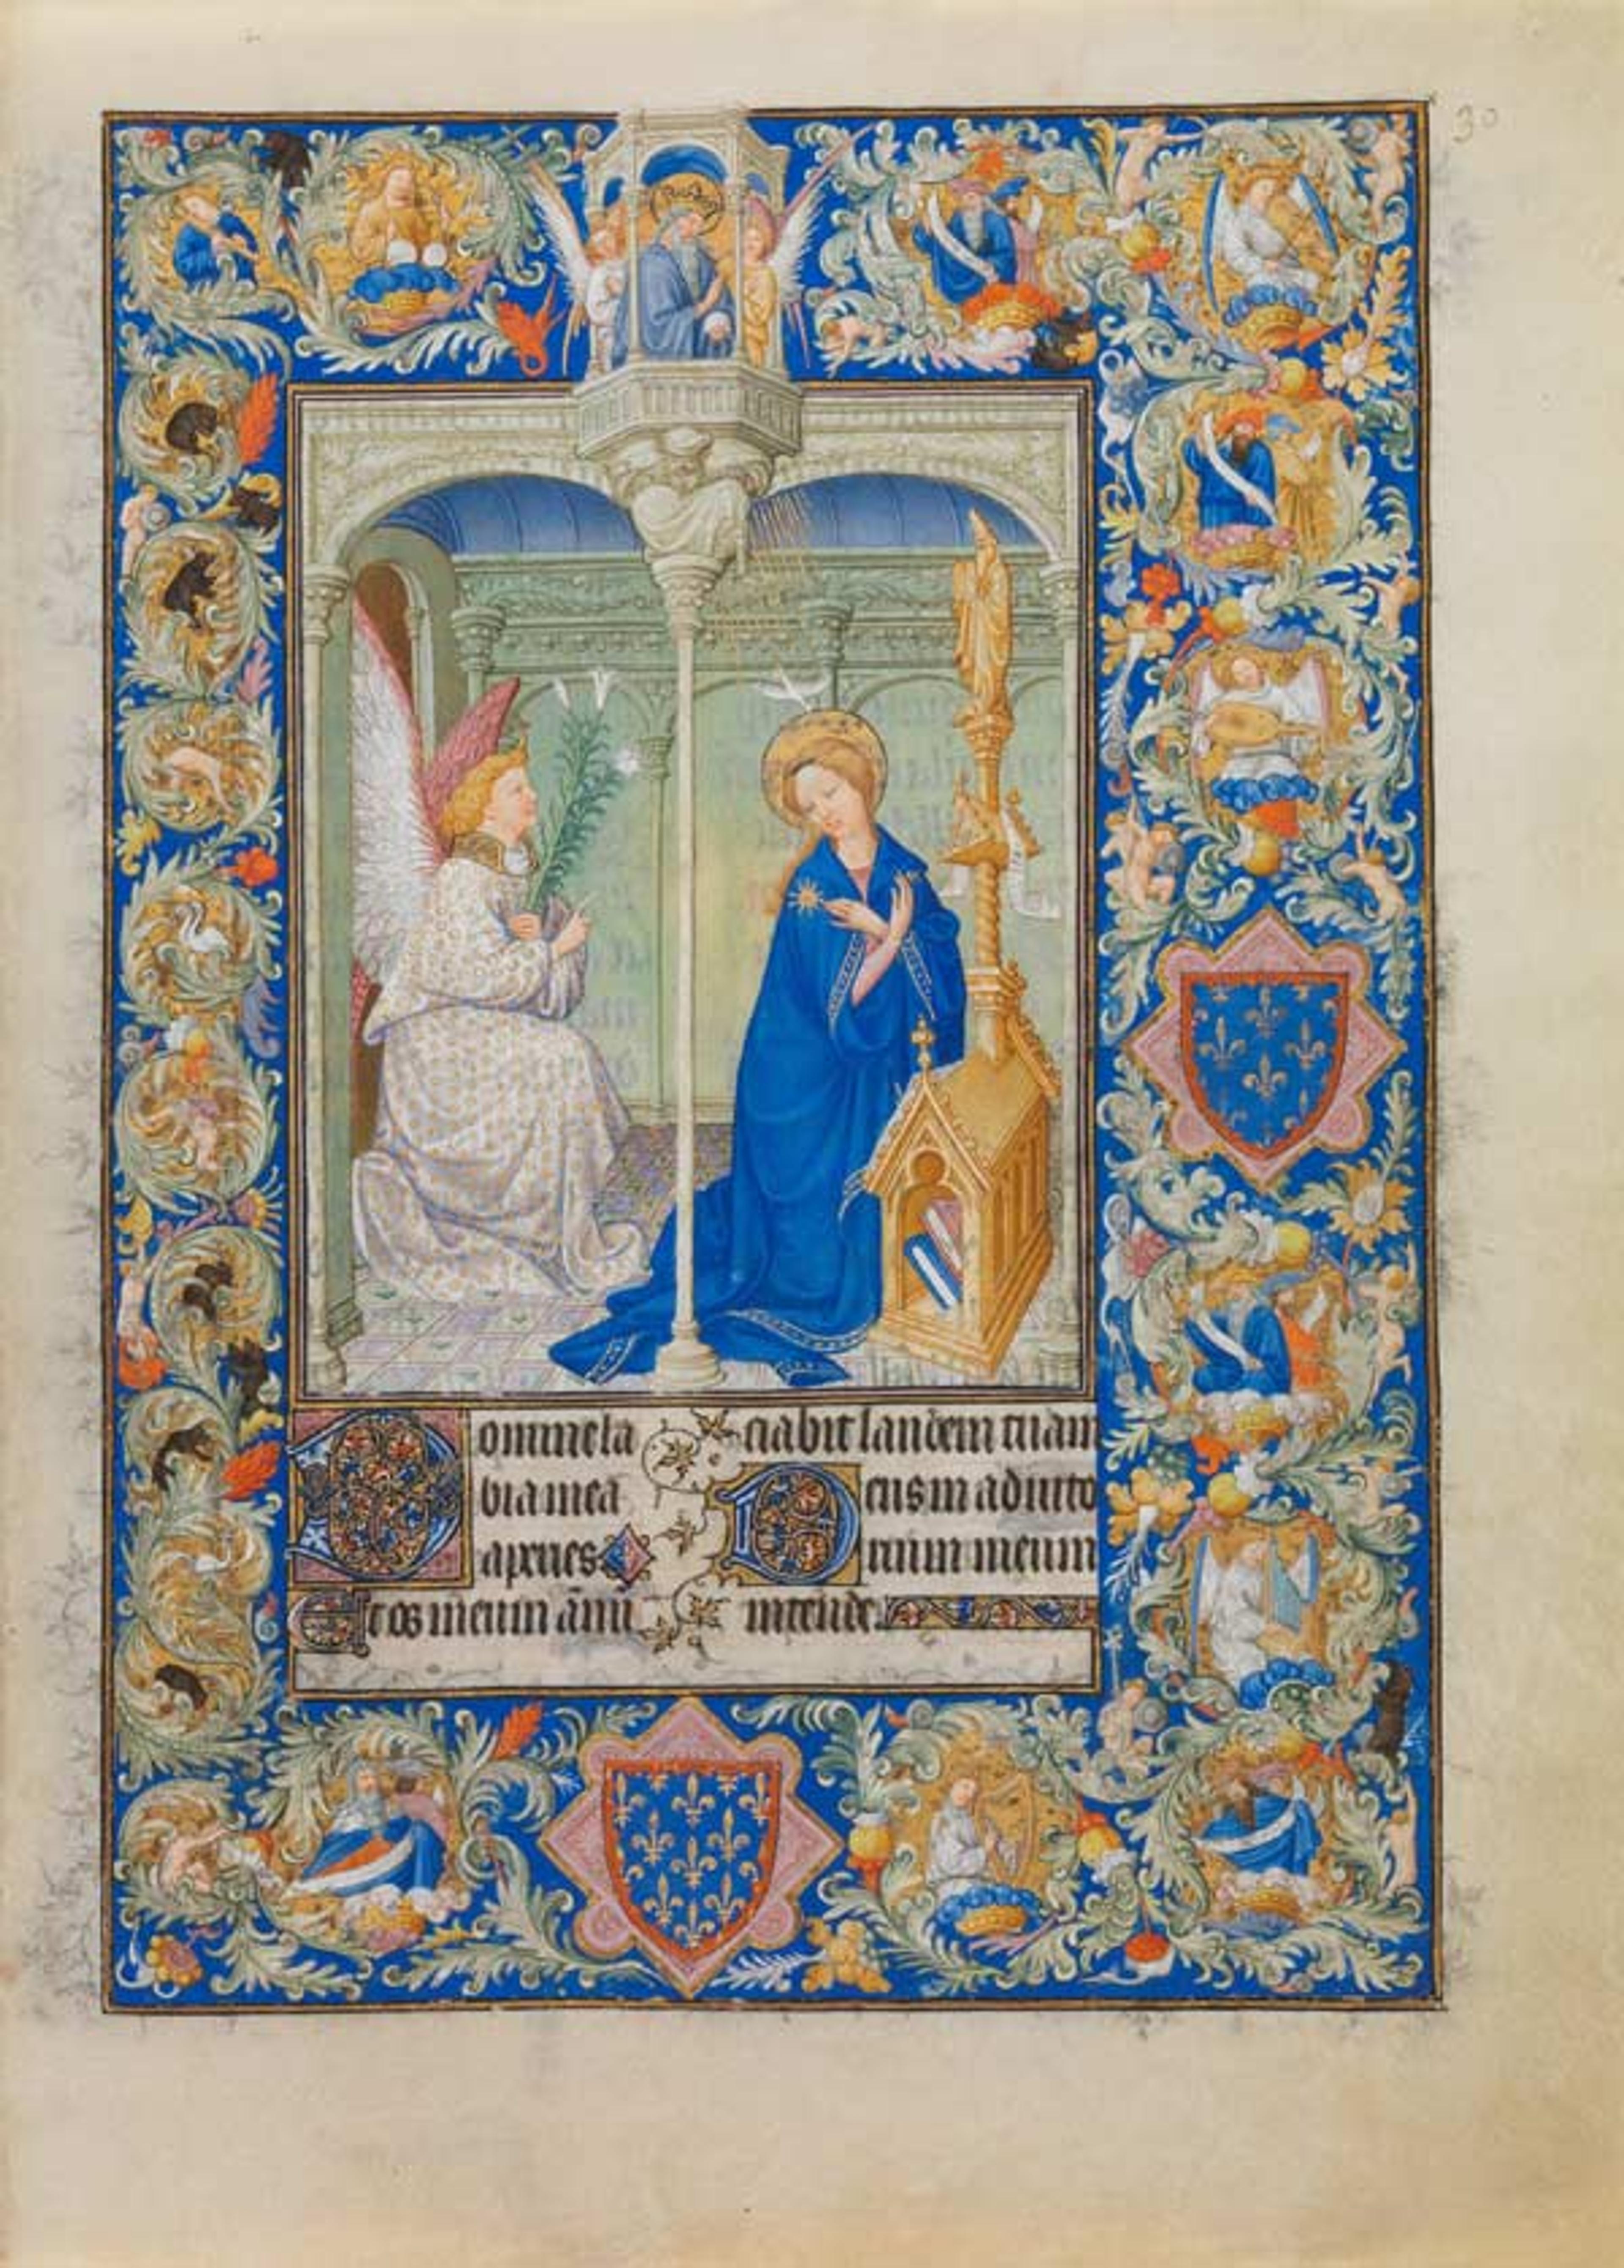 30
Domine la
bia mea
aperies
Et os meum annū
ciabit laudem tuam
Deus in adiuto
rium meum
intende.